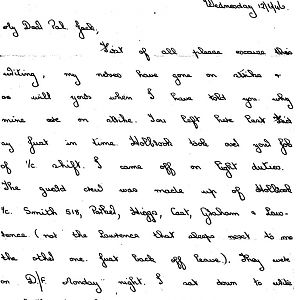 Wednesday 12/4/46.
My Dear Pal Jack,
First of all please excuse this
writing, my nerves have gone on strike &
so will yours when I have told you why
mine are on strike. You left here last Fri
day just in time. Holbrook took over your job
of i/c shift. I came off on light duties.
The guard crew was made up of Holbrook
i/c. Smith 518, Parkel, Higgs, Cart, Graham & Law-
rence (not the Lawrence that sleeps next to me
the other one. just back off leave). They were
on D/F Monday night. I sat down to write